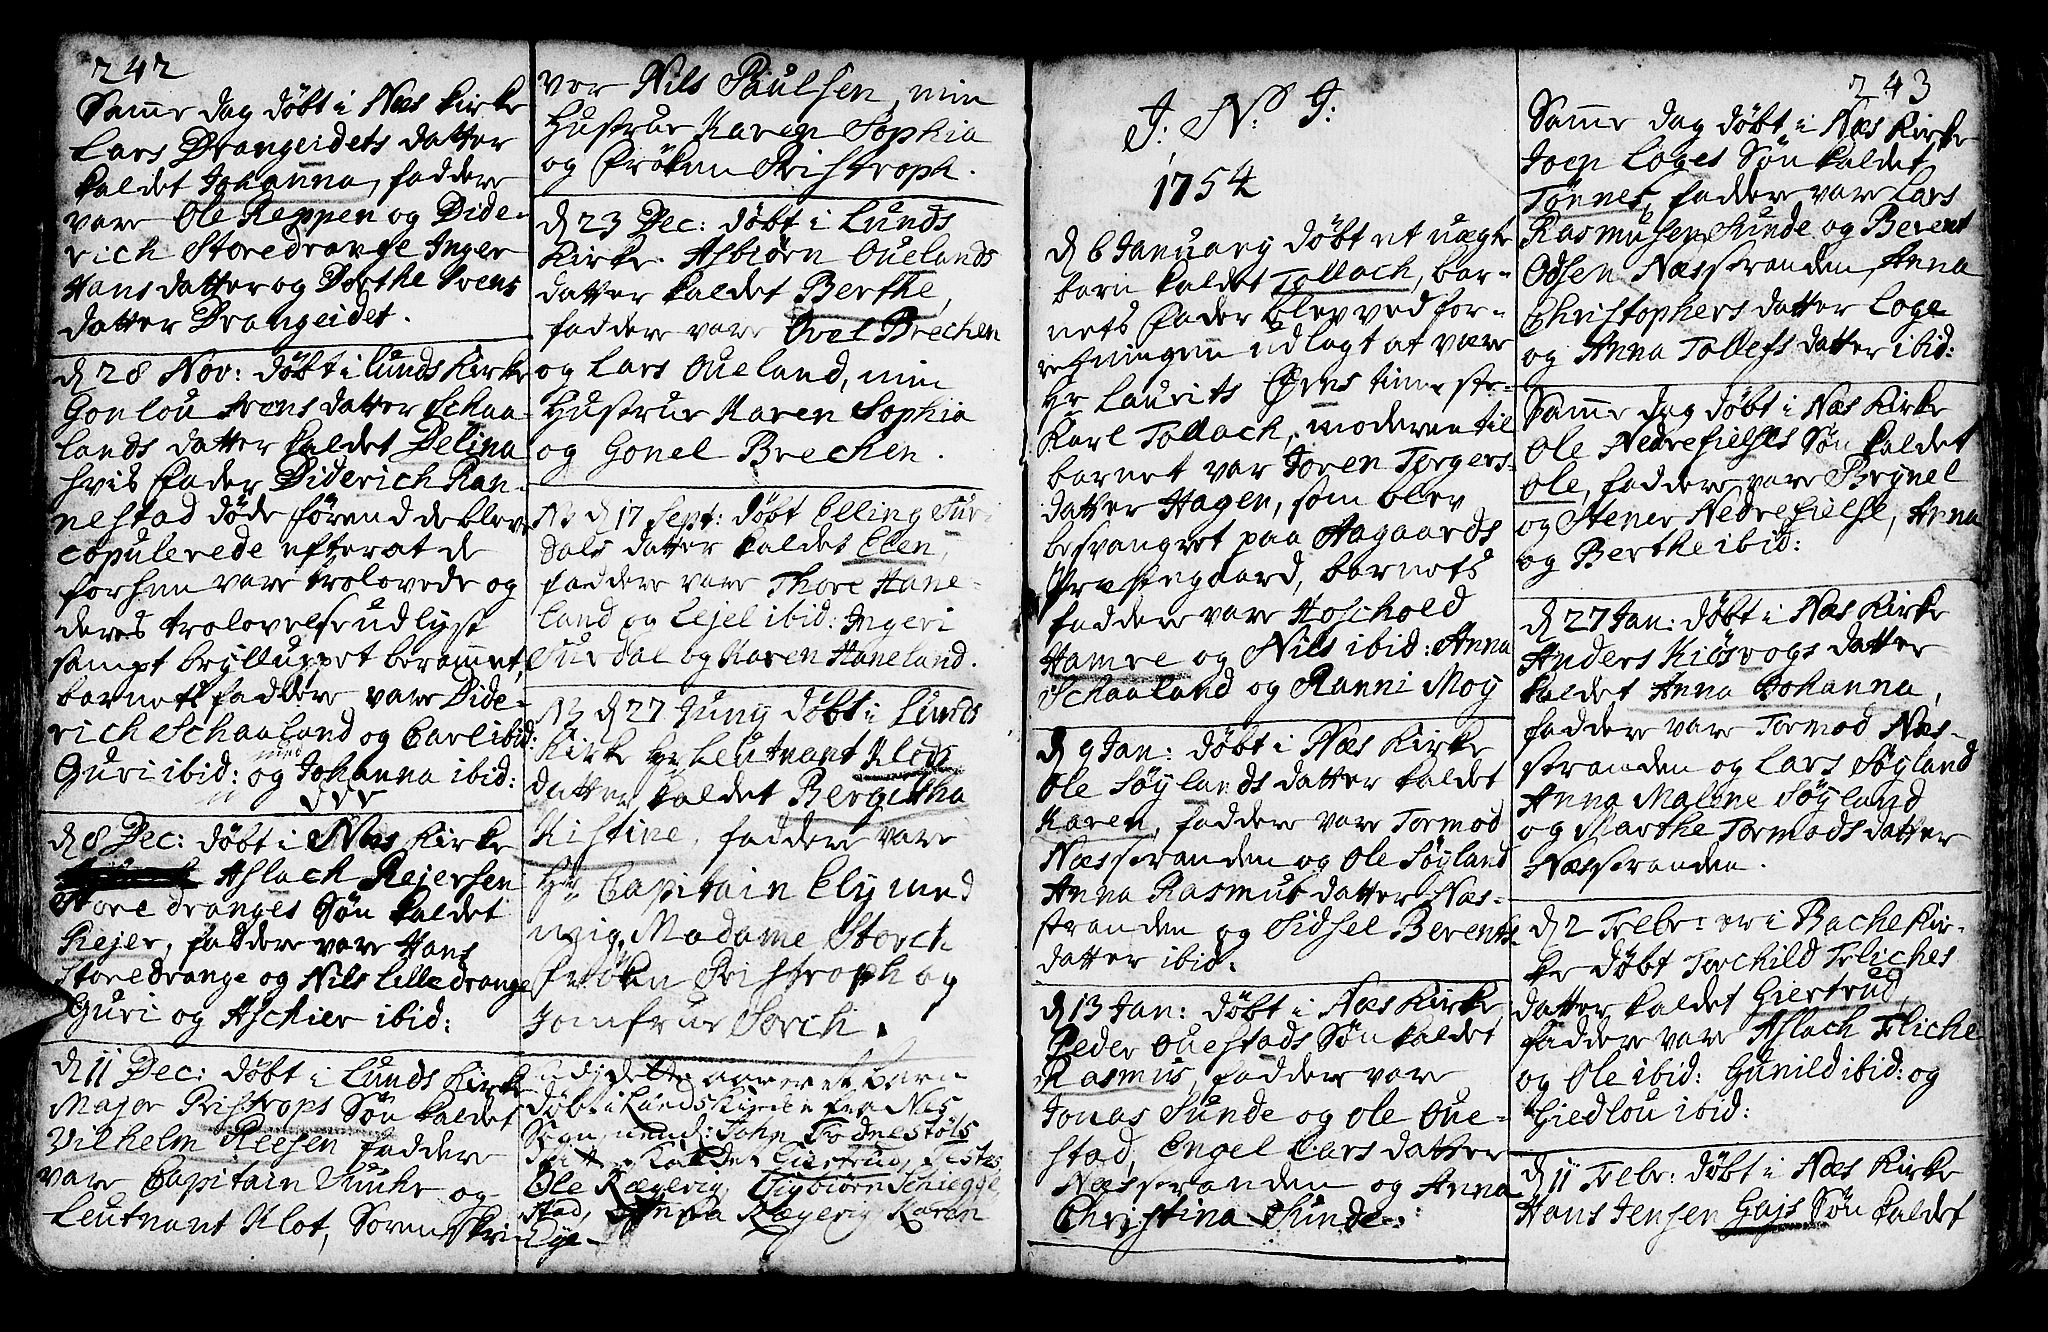 242
Same dag døbt i Næs Kirke
Lars Drangeidets datter
kaldet Johanna, faddere
vare Ole Reppen og Dide-
rich Storedrange Inger
Hans datter og Dorthe Svens
datter Drangeidet.
d 28 Nov: døbt i Lunds Kirke
Gonlou Svens datter Schaa-
lands datter kaldet Delina
hvis Fader Diderich Ran-
nestad døde førend de blev
copulerede efterat de
forhen vare trolovede og
deres trolovelse udlyst
sampt brylluppet beramet,
barnets faddere vare Dide-
rich Schaaland og Carl ibid:
Guri ibid: og Johanna ibid:
d 8 Dec: døbt i Næs Kirke
Aslach Rejersen
Store dranges Søn kaldet
Rejer, faddere vare Hans
Storedrange og Nils Lilledrange
Guri og Aschier ibid:
d 11 Dec: døbt i Lunds Kirke
Major Pristrops Søn kaldet
Vilhelm Reesen faddere
vare Capitain Munk og
Leutnant Klot, Soren Skri-
ver Nils Paulsen, min
Hustrue Karen Sophia
og Frøken Pristroph.
d 23 Dec: døbt i Lunds
Kirke Asbiørn Ouelands
datter kaldet Berthe,
faddere vare Ovel Brechen
og Lars Oueland, min
Hustrue Karen Sophia
og Gonel Brechen.
NB d 17 Sept: døbt Elling Sur-
dals datter kaldet Elen,
faddere vare Thore Hane-
land og Ejel ibid: Ingeri
Surdal og Karen Haneland.
NB d 27 Juny døbt i Lunds
Kirke Hr Leutnant Klods
datter kaldet Bergitha
Kistine, faddere vare
Hr Capitain Ely med
mig, Madame Storch
Frøken Pristroph og
Jomfrue Storch.
dette aar er et barn
døbt i Lunds Kirke fra Nes
Sogn, nemd: John Fodnestøls
datter kaldet Giertrud,
Ole Rægevig, Sigbiørn Schiegge-
stad, Anna Rægevig Karen
Eye
J. N. J:
1754
d 6 January døbt et uægte
barn kaldet Tollach, bar-
nets Fader blev ved for-
retningen udlagt at være
Hr Laurits Ørns tieneste-
Karl Tollach, moderen til
barnet var Joren Torgers-
datter Hagen, som blev
besvangret paa Aagaards
Præstegaard, barnets
faddere vare Hoschold
Hamre og Nils ibid: Anna
Schaaland og Ranni Moy
d 9 Jan: døbt i Næs Kirke
Ole Søylands datter kaldet
Karen, faddere vare Tormod
Næsstranden og Ole Søyland
Anna Rasmus datter Næs-
stranden og Sidsel Berents
datter ibid.
d 13 Jan: døbt i Næs Kirke
Peder Ouestads Søn kaldet
Rasmus, faddere vare
Jonas Sunde og Ole Oue-
stad, Engel Lars datter
Næsstranden og Anna
Christina Sunde.
243
Same dag døbt i Næs Kirke
Joen Loges Søn kaldet
Tønnes, faddere vare Lars
Rasmusen Sunde og Berent
Odsen Næsstranden, Anna
Christophers datter Loge
og Anna Tollefs datter ibid:
Same dag døbt i Næs Kirke
Ole Nedrefielses Søn kaldet
Ole, faddere vare Brynel
og Stener Nedrefielse, Anna
og Berthe ibid:
d 27 Jan: døbt i Næs Kirke
Anders Kiøsvogs datter
kaldet Anna Johanna,
faddere vare Tormod Næs-
stranden og Lars Søyland
Anna Malene Søyland
og Marthe Tormods datter
Næsstranden.
d 2 Febr: er i Bache Kir-
ke døbt Torchild Fliches
datter kaldet Giertrud,
faddere vare Aslach Fliche
og Ole ibid: Gunild ibid: og
Giedlou ibid:
d 11 Febr: døbt i Næs Kirke
Hans Jensen Gajs Søn kaldet